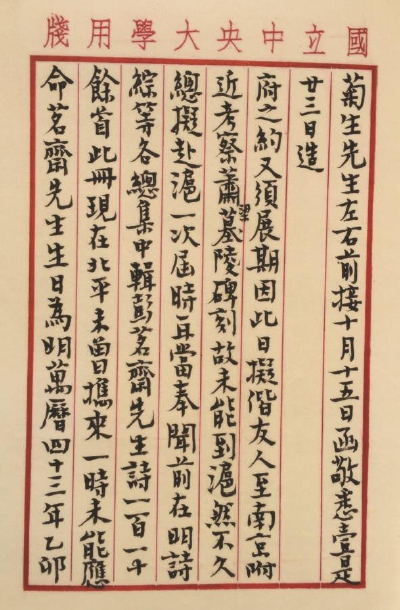 國立中央大學用牋
菊生先生左右前接十月十五日函敬悉壹是
廿三日造
府之約又須展期因此日擬偕友人至南京附
近考察蕭梁墓陵碑刻故未能到滬然不久
總擬赴滬一次屆時再當奉聞前在明詩
綜等各總集中輯彭茗齋先生詩一百一十
餘首此冊現在北平未曾攜來一時未能應
命茗齋先生生日為明萬曆四十三年乙卯